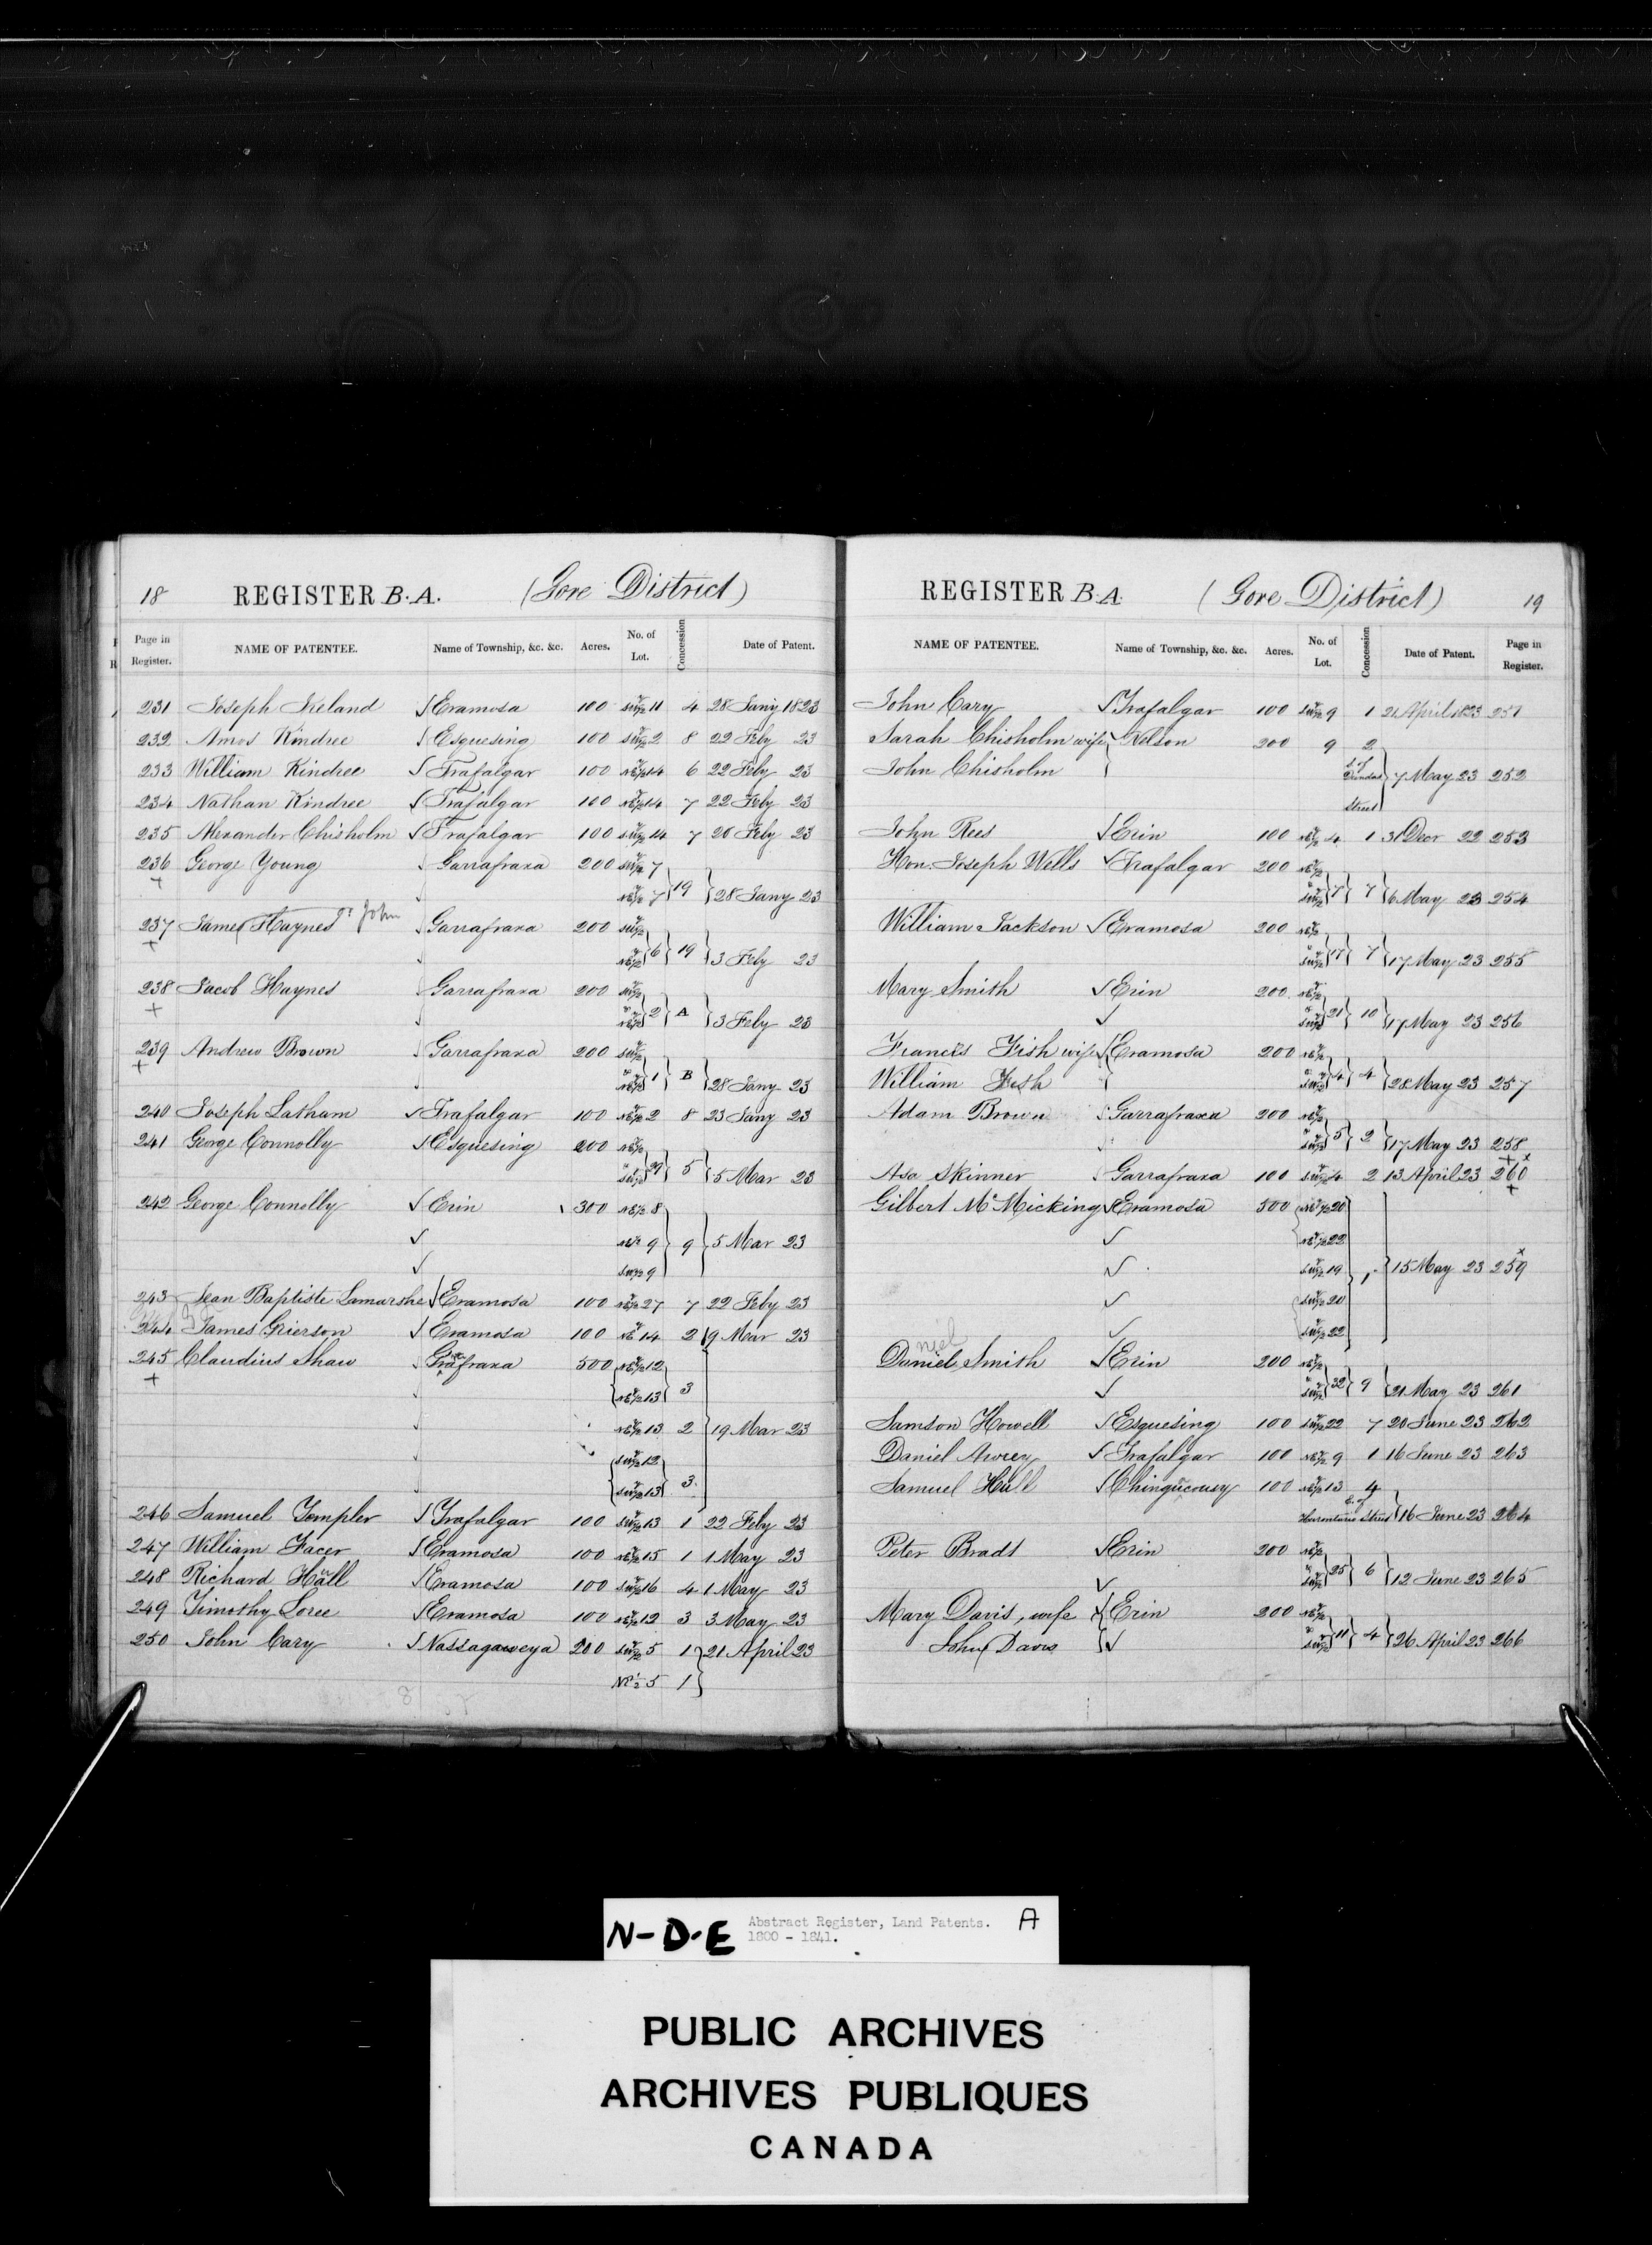 18 REGISTER B.A. (Gore District)
Page in Register. NAME OF PATENTEE. Name of Township, &c. &c. Acres. No. of Lot. Concession Date of Patent.
231 Joseph Ireland Eramosa 100 SW½ 11 4 28 Jany 1823
232 Amos Kindree Esquesing 100 SW½ 2 8 22 Feby 23
233 William Kindree Trafalgar 100 NE½ 14 6 22 Feby 23
234 Nathan Kindree Trafalgar 100 NE½ 14 7 22 Feby 23
235 Alexander Chisholm Trafalgar 100 SW½ 14 7 20 Feby 23
236 George Young Garrafraxa 200 SW½ 7
+ NE½ 7 } 19 } 28 Jany 23
237 James Haynes or John Garrafraxa 200 SW½
+ NE½ } 6 } 19 } 3 Feby 23
238 Jacob Haynes Garrafraxa 200 SW½
+ & NE½ } 2 } A } 3 Feby 23
239 Andrew Brown Garrafraxa 200 SW½
+ & NE½ } 1 } B } 28 Jany 23
240 Joseph Latham Trafalgar 100 NE½ 2 8 23 Jany 23
241 George Connolly Esquesing 200 NE½
& SW½ } 29 } 5 } 5 Mar 23
242 George Connolly Erin 300 NE½ 8
NE½ 9 } 9 } 5 Mar 23
SW½ 9
243 Jean Baptiste Lamarshe Eramosa 100 NE½ 27 7 22 Feby 23
244 James Grierson Eramosa 100 NE 14 2 19 Mar 23
245 Claudius Shaw Garafraxa 500 NE½ 12
+ NE½ 13 } 3
NE½ 13 2 } 19 Mar 23
SW½ 12
SW½ 13 } 3
246 Samuel Templer Trafalgar 100 SW½ 13 1 22 Feby 23
247 William Facer Eramosa 100 NE½ 15 1 1 May 23
248 Richard Hull Eramosa 100 SW½ 16 4 1 May 23
249 Timothy Loree Eramosa 100 NE½ 12 3 3 May 23
250 John Cary Nassagaweya 200 SW½ 5 1 } 21 April 23
NE½ 5 1 }
REGISTER B.A. (Gore District) 19
NAME OF PATENTEE. Name of Township, &c. &c. Acres. No. of Lot. Concession Date of Patent. Page in Register.
John Cary Trafalgar 100 SW½ 9 1 21 April 1823 251
Sarah Chisholm wife Nelson 200 9 2
John Chisholm } S. of Dundas } 7 May 23 252
Street
John Rees Erin 100 NE½ 4 1 31 Decr 22 253
Hon. Joseph Wells Trafalgar 200 NE½
& SW½ } 7 } 7 } 6 May 23 254
William Jackson Eramosa 200 NE½
& SW½ } 17 } 7 } 17 May 23 255
Mary Smith Erin 200 NE½
& SW½ } 21 } 10 } 17 May 23 256
Frances Fish wife Eramosa 200 NE½
William Fish & SW½ } 4 } 4 } 28 May 23 257
Adam Brown Garrafraxa 200 NE½
& SW½ } 5 } 2 } 17 May 23 258 +
Asa Skinner Garrafraxa 100 SW½ 4 2 13 April 23 260 x
+
Gilbert McMicking Eramosa 500 NE½ 20
NE½ 22
SW½ 19 } 1 } 15 May 23 259 x
SW½ 20
SW½ 22
Daniel Smith Erin 200 NE½
& SW½ } 32 } 9 } 21 May 23 261
Samson Howell Esquesing 100 SW½ 22 7 20 June 23 262
Daniel Awrey Trafalgar 100 NE½ 9 1 16 June 23 263
Samuel Hull Chinguacousy 100 NE½ 13 4
E. of Hurontario Street } 16 June 23 264
Peter Bradt Erin 200 NE½
& SW½ } 25 } 6 } 12 June 23 265
Mary Davis, wife Erin 200 NE½
John Davis } & SW½ } 11 } 4 } 26 April 23 266
N-D-E Abstract Register, Land Patents. A
1800 - 1841.
PUBLIC ARCHIVES
ARCHIVES PUBLIQUES
CANADA